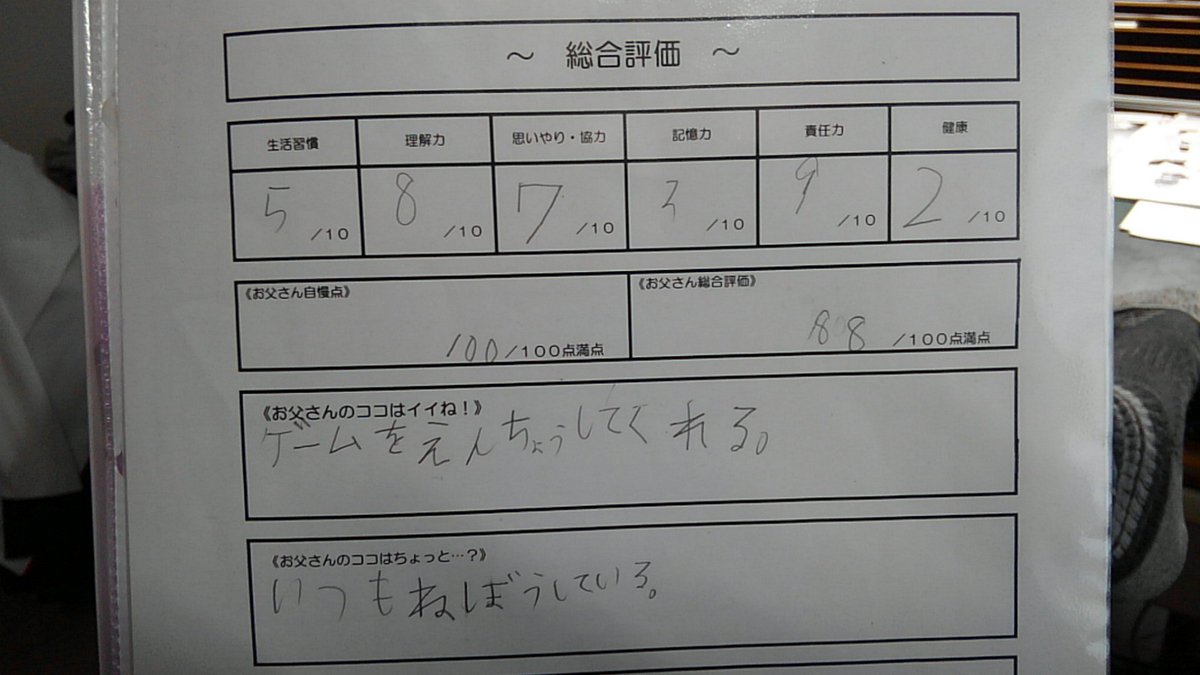 ～ 総合評価 ～
生活習慣 理解力 思いやり・協力 記憶力 責任力 健康
5/10 8/10 7/10 3/10 9/10 2/10
《お父さん自慢点》 《お父さん総合評価》
100/100点満点 88/100点満点
《お父さんのココはイイね！》
ゲームをえんちょうしてくれる。
《お父さんのココはちょっと…？》
いつもねぼうしている。